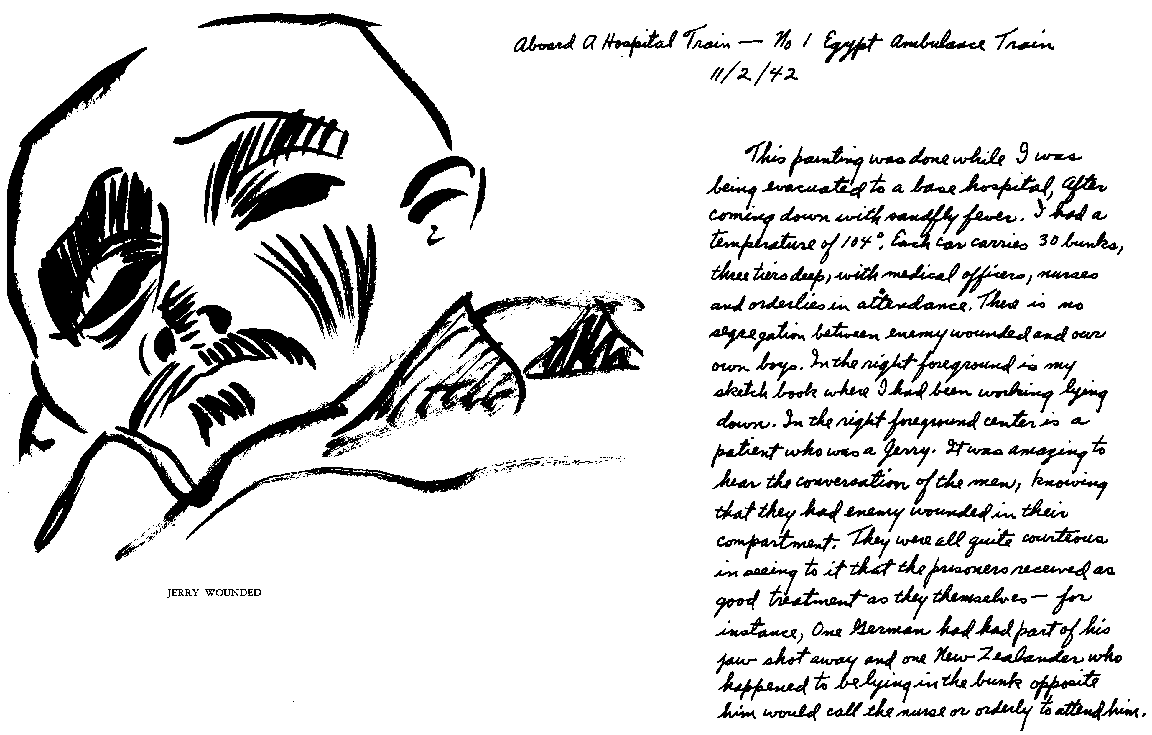 Aboard A Hospital Train — No 1 Egypt Ambulance Train
11/2/42
This painting was done while I was
being evacuated to a base hospital, after
coming down with sandfly fever. I had a
temperature of 104°. Each car carries 30 bunks,
three tiers deep, with medical officers, nurses
and orderlies in attendance. There is no
segregation between enemy wounded and our
own boys. In the right foreground is my
sketch book where I had been working lying
down. In the right foreground center is a
patient who was a Jerry. It was amazing to
hear the conversation of the men, knowing
that they had enemy wounded in their
compartment. They were all quite courteous
in seeing to it that the prisoners received as
good treatment as they themselves — for
instance, One German had had part of his
jaw shot away and one New Zealander who
happened to be lying in the bunk opposite
him would call the nurse or orderly to attend him.
JERRY WOUNDED